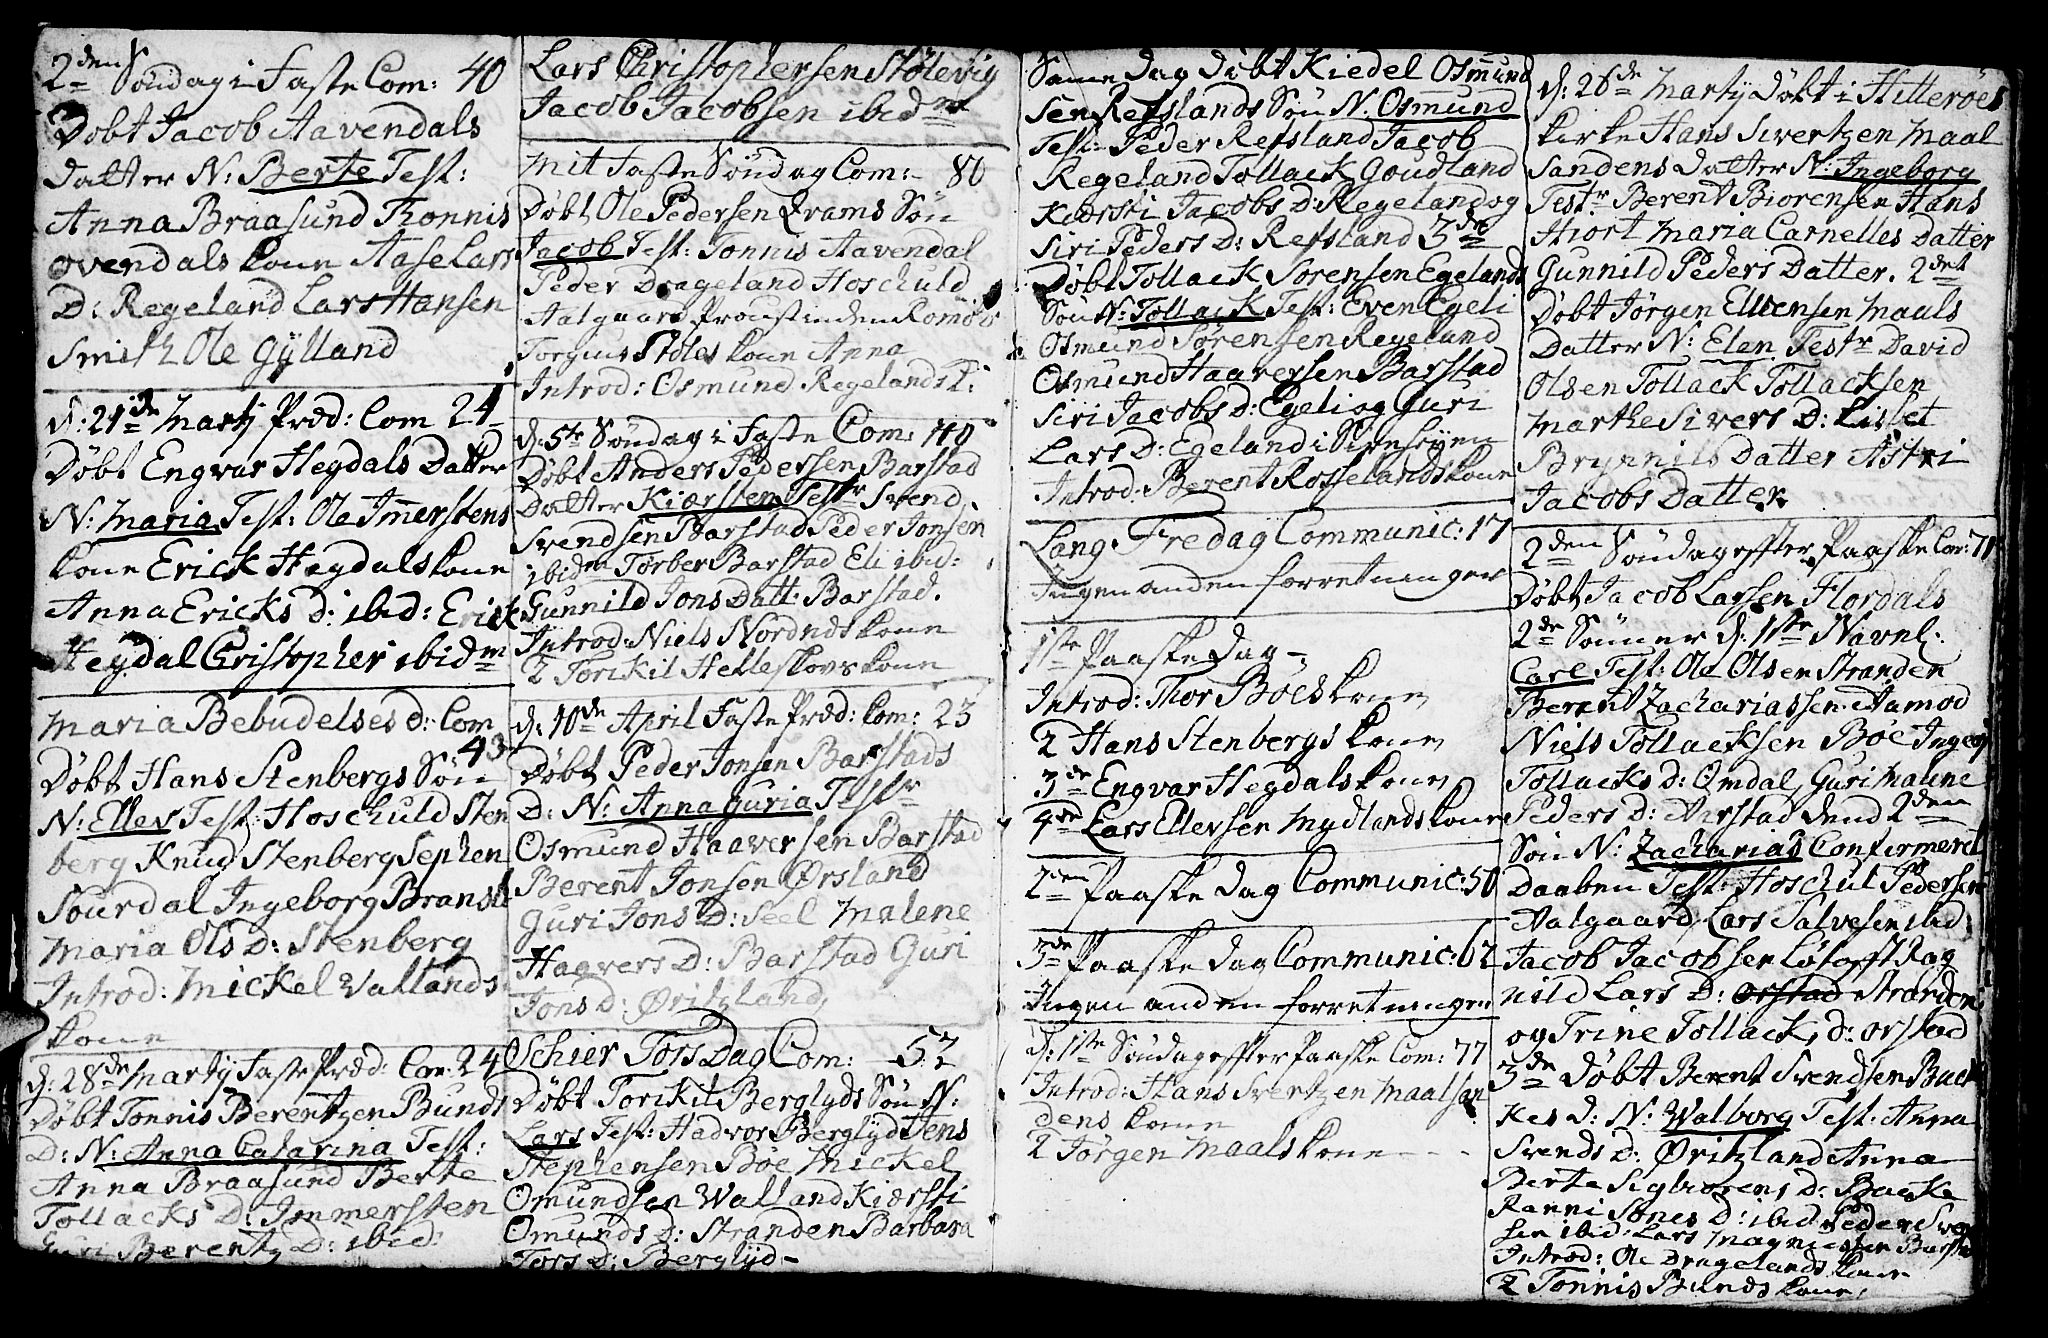 2den Søndag i Faste Com: 40
Døbt Jacob Aavendals
Datter N: Berte Test:
Anna Braasund Tonnis
ovendals kone Aase Lars
D: Regeland Lars Hansen
Smith Ole Gylland
d: 21de Martj Præd: Com 24
Døbt Engvar Hegdals Datter
N: Maria Test: Ole Immerstens
kone Erick Hegdals kone
Anna Ericks D: ibid: Erick
Hegdal Christopher ibidm
Maria Bebudelses d: Com
43
Døbt Hans Stenbergs Søn
N: Ellev Test: Hoschuld Sten
berg Knud Stenberg Sephen
Sourdal Ingeborg
Maria Ols D: Stenberg
Introd: Mickel Vatlands
kone
d: 28de Martj Faste Præd: Com: 24
Døbt Tonnis Berentzen Bunds
D: N: Anna Catarina Test:
Anna Braasund Berte
Tollacks D: Immersten
Guri Berentz D: ibid:
Lars Christophersen Stølevig
Jacob Jacobsen ibidm
Mit Faste Søndag Com: 80
Døbt Ole Pedersen Qvams Søn
Jacob Test: Tonnis Aavendal
Peder Drageland Hoschuld
Aalgaard Proustinden Romøes
Torgius Støles kone Anna
Introd: Osmund Regelands K:
d: 5te Søndag i Faste Com: 40
Døbt Anders Pedersen Barstad
Datter Kiersten Testr Svend
Svendsen Barstad Peder Jonsen
ibidm Torber Barstad Eli ibid:
Gunnild Jons Datt: Barstad.
Introd: Niels Nordnds kone
2 Torikil Helleskovs kone
d: 10de April Faste Præd: Com: 23
Døbt Peder Jonsen Barstads
D: N: Anna Guria Testr
Osmund Haaversen Barstad
Berent Jonsen Ørsland
Guri Jons D: Seel Malene
Haavers D: Barstad Guri
Jons d: Øritzland,
Schier Tors Dag Com: 52
Døbt Torikil Berglyds Søn N:
Lars Test: Hadvor Berglyd Jens
Stephensen Bøe Mickel
Omundsen Walland Kiersti
Omunds D: Stranden Barbara
Tors D: Berglyd
Same Dag Døbt Kiedel Osmund
sen Refslands Søn N. Osmund
Test: Peder Refsland Jacob
Regeland Tollack Goudland
Kiersti Jacobs D: Regeland og
Siri Peders D: Refsland 3de
Døbt Tollack Sørensen Egelands
Søn N: Tollack Test: Even Egeli
Osmund Sørensen Regeland
Osmund Haaversen Barstad
Siri Jacobs D: Egeli og Guri
Lars D: Egeland i Sirensøyen
Introd: Berent Rosselands kone
Lang Fredag Communic: 17
Ingen anden forretninger
1ste Paaske Dag
Introd: Thor Bøes kone
2 Hans Stenbergs kone
3de Engvar Hegdals kone
4de Lars Ellevsen Mydlands kone
2den Paaske Dag Communic: 50
3de Paaske Dag Communic: 62
Ingen anden forretninger
d: 1ste Søndag effter Paaske Com: 77
Introd: Hans Svertzen Maalsan
dens kone
2 Jørgen Maals kone
d: 26de Martj Døbt i Hitterøes
kirke Hans Sivertzen Maal
Sandens Datter N: Ingeborg
Testr Berent Biorensen Hans
Hiort Maria Carnelles Datter
Gunnild Peders Datter. 2det
Døbt Jørgen Ellevsen Maals
Datter N: Elen Testr David
Olsen Tollack Tollacksen
Marthe Sivers D: Lisbet
Brynnils Datter Astri
Jacobs Datter
2den Søndag effter Paaske Com: 71
Døbt Jacob Larsen Flordals
2de Sønner d: 1ste Navnl:
Carl Test: Ole Olsen Stranden
Berent Zachariassen Aamod
Niels Tollacksen Bøe Ingeg
Tollacks D: Omdal, Guri Malene
Peders D: Aarstad dend 2den
Søn N: Zacharias Confirmeret
Daaben Test: Hoschul Pedersen
Aalgaard, Lars Salvesen ibid
Jacob Jacobsen Løtofft Rag
nild Lars D: Orstad Stranden
og Trine Tollacks d: Orstad
3de Døbt Berent Svendsen Bac
kes d: N: Walborg Test: Anna
Svends D: Øritzland Anna
Berte Sigbiørens D: Backe
Ranni Jones D: ibid Peder Sven
sen ibid: Lars Magnussen Barst
Introd: Ole Dragelands kone
2 Tonnis Bunds kone,